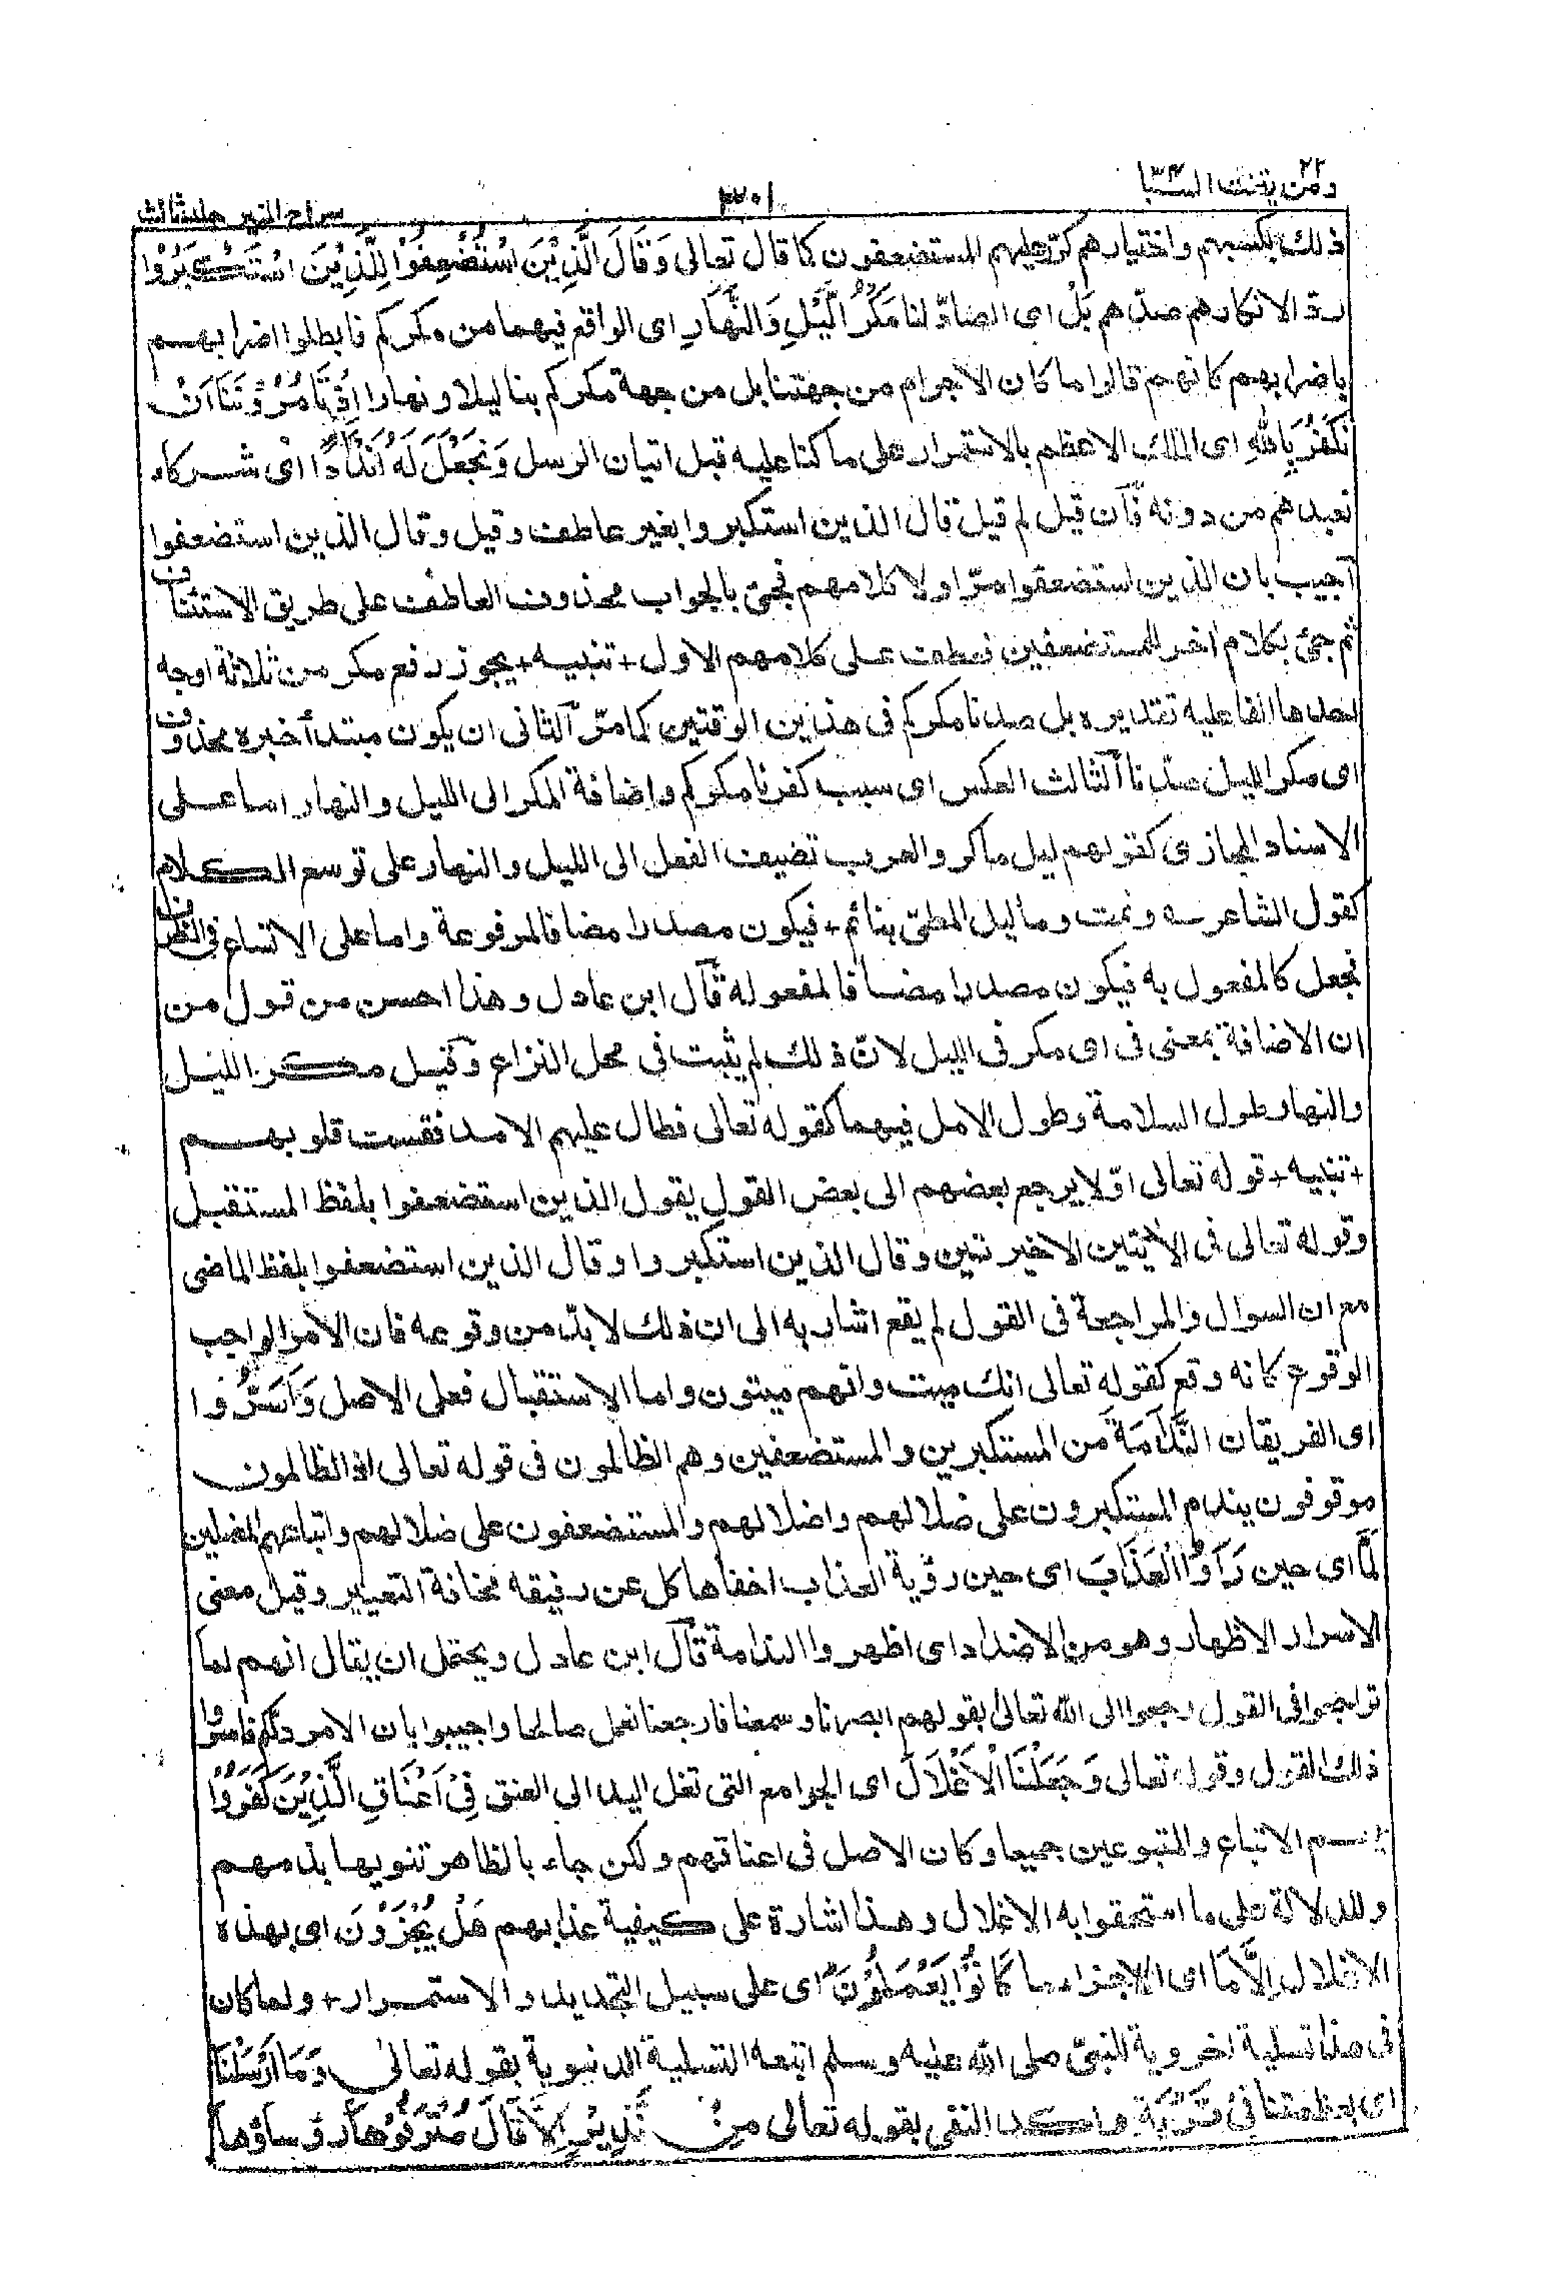 ومن يقنت ٢٢ السبا ٣٤
سراج المنير جلد ثالث
ذلك بكسبهم واختيارهم كرّ عليهم المستضعفون كما قال تعالى وَقَالَ الَّذِيْنَ اسْتُضْعِفُوْا لِلَّذِيْنَ اسْتَكْبَرُوْا
ردّ الانكارهم صدّهم بَلْ اى الصادّ لنا مَكْرُ الَّيْلِ وَالنَّهَارِ اى الواقع فيهما من مكركم فابطلوا اضرابهم
باضرابهم كانهم قالوا ما كان الاجرام من جهتنا بل من جهة مكركم بنا ليلا ونهارا اِذْ تَاْمُرُوْنَنَا اَنْ
نَّكْفُرَ بِاللهِ اى الملك الاعظم بالاستمرار على ما كنا عليه قبل اتيان الرسل وَنَجْعَلَ لَهُ اَنْدَادًا اى شركاء
نعبدهم من دونه فآن قيل لم قيل قال الذين استكبروا بغير عاطف وقيل وقال الذين استضعفوا
آجيب بان الذين استضعفوا مرّ اولا كلامهم فجئ بالجواب محذوف العاطف على طريق الاستئناف
ثم جئ بكلام اخر للمستضعفين فعطف على كلامهم الاول + تنبيه + يجوز رفع مكر من ثلاثة اوجه
احدها الفاعلية تقديره بل صدنا مكركم فى هذين الوقتين كما مرّ آلثانى ان يكون مبتدأ خبره محذوف
اى مكر الليل صدّنا آلثالث العكس اى سبب كفرنا مكركم واضافة المكر الى الليل والنهار اما على
الاسناد المجازى كقولهم ليل ماكر والعرب تضيف الفعل الى الليل والنهار على توسع الكلام
كقول الشاعر ؎ ونمت وما ليل المطىّ بنائم + فيكون مصدرا مضافا لمرفوعة واما على الاتساع فى الظرف
فجعل كالمفعول به فيكون مصدرا مضافا لمفعوله قآل ابن عادل وهذا احسن من قول من
ان الاضافة بمعنى فى اى مكر فى الليل لانّ ذلك لم يثبت فى محل النزاع وقيل مكر الليل
والنهار طول السلامة وطول الامل فيهما كقوله تعالى فطال عليهم الامد فقست قلوبهم
+ تنبيه + قوله تعالى اوّلا يرجع بعضهم الى بعض القول يقول الذين استضعفوا بلفظ المستقبل
وقوله تعالى فى الاٰيتين الاخيرتين وقال الذين استكبروا وقال الذين استضعفوا بلفظ الماضى
مع ان السوال والمراجعة فى القول لم يقع اشار به الى ان ذلك لا بدّ من وقوعه فان الامر الواجب
الوقوع كانه وقع كقوله تعالى انك ميت وانهم ميتون واما الاستقبال فعلى الاصل وَاَسَرُّوا
اى الفريقان النَّدَامَةَ من المستكبرين والمستضعفين وهم الظالمون فى قوله تعالى اذ الظالمون
موقوفون يندم المستكبرون على ضلالهم واضلالهم والمستضعفون على ضلالهم واتباعهم المضلين
لَمَّا اى حين رَاَوُا الْعَذَابَ اى حين رؤية العذاب اخفاها كل عن رفيقه مخافة التعيير وقيل معنى
الاسرار الاظهار وهو من الاضداد اى اظهروا الندامة قآل ابن عادل ويحتمل ان يقال انهم لما
تراجعوا فى القول رجعوا الى الله تعالىٰ بقولهم ابصرنا وسمعنا فارجعنا نعمل صالحا واجيبوا بان الامر دلكم فاسروا
ذلك القول وقوله تعالى وَجَعَلْنَا الْاَغْلَالَ اى الجوامع التى تغل اليد الى العنق فِىْ اَعْنَاقِ الَّذِيْنَ كَفَرُوْا
يعم الاتباع والمتبوعين جميعا وكان الاصل فى اعناقهم ولكن جاء بالظاهر تنويها بذمهم
وللدلالة على ما استحقوا به الاغلال وهذا اشارة على كيفية عذابهم هَلْ يُجْزَوْنَ اى بهذه
الاغلال اِلَّا مَا اى الا جزاء ما كَانُوْا يَعْمَلُوْنَ اى على سبيل التجديد والاستمرار + ولما كان
فى هذا تسلية اخروية للنبىّ صلى الله عليه وسلم اتبعه التسلية الدنيوية بقوله تعالىٰ وَمَا اَرْسَلْنَا
اى بعظمتنا فِىْ قَرْيَةٍ واكد النفى بقوله تعالى مِنْ نَّذِيْرٍ اِلَّا قَالَ مُتْرَفُوْهَا رؤساؤها